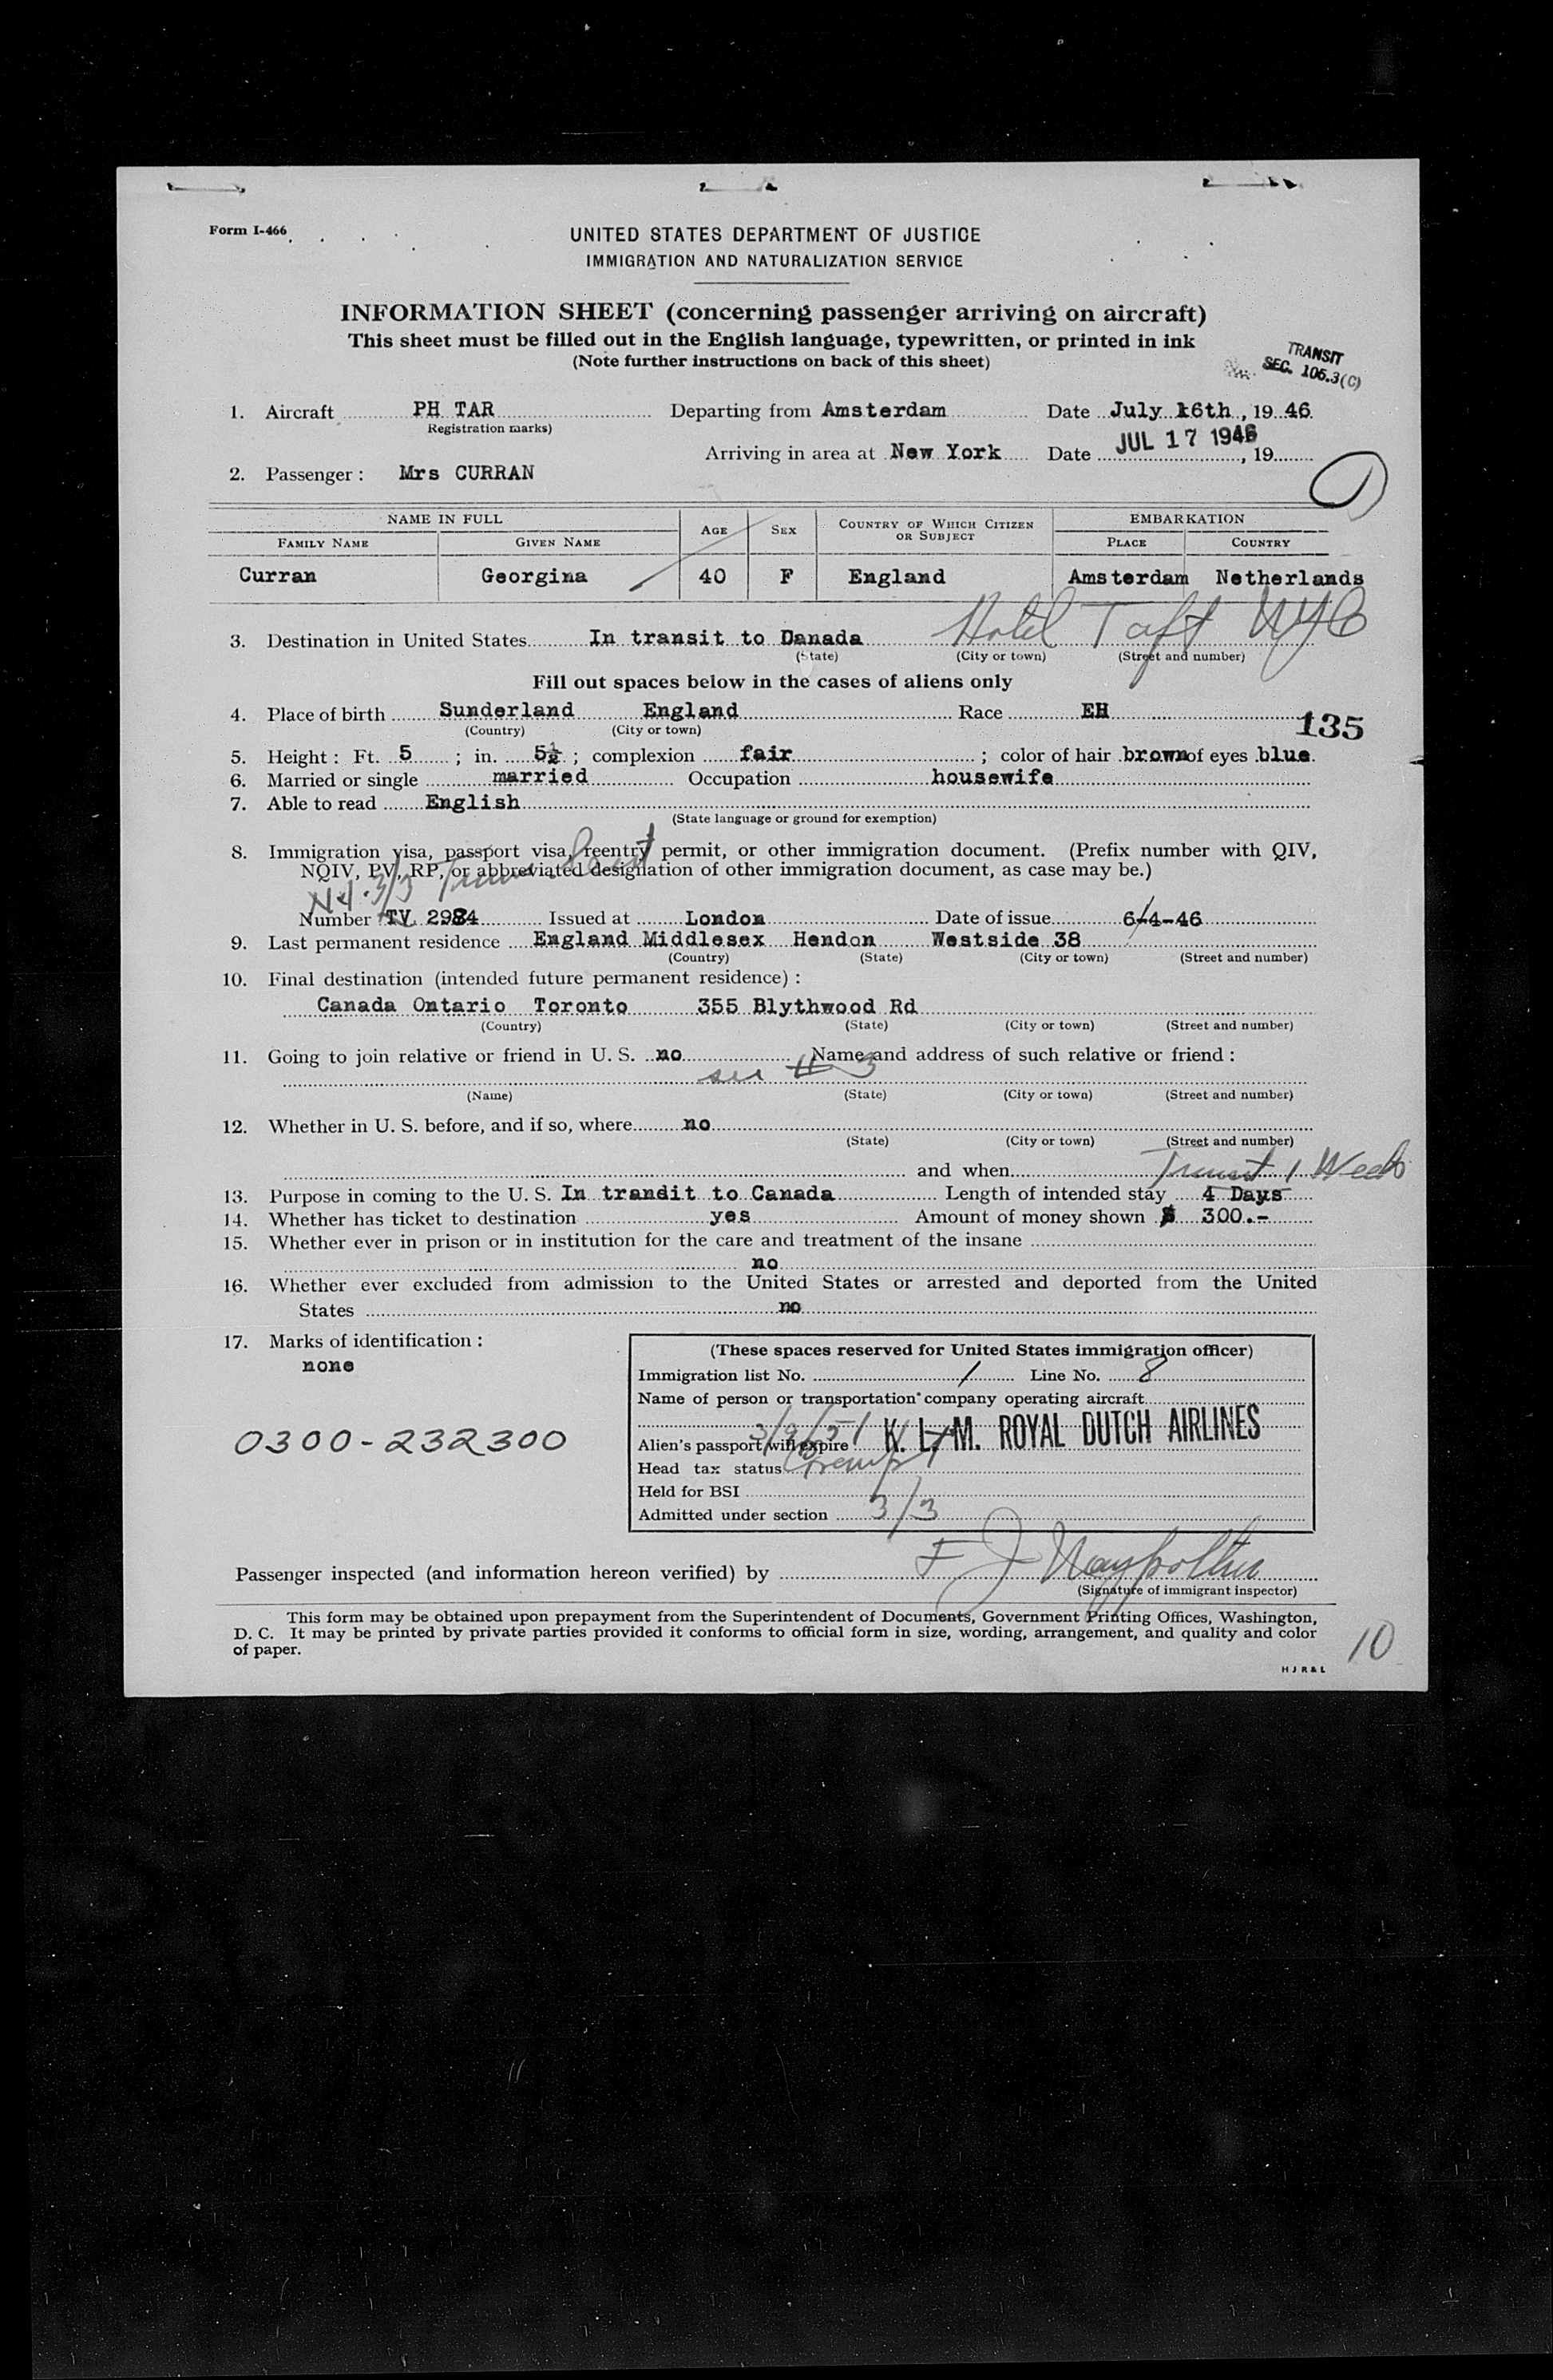 Form I-466
UNITED STATES DEPARTMENT OF JUSTICE
IMMIGRATION AND NATURALIZATION SERVICE
INFORMATION SHEET (concerning passenger arriving on aircraft)
This sheet must be filled out in the English language, typewritten, or printed in ink
(Note further instructions on back of this sheet)
TRANSIT
SEC. 105.3(C)
1. Aircraft PH TAR Departing from Amsterdam Date July 16th, 19 46
(Registration marks)
Arriving in area at New York Date JUL 17 1946, 19
2. Passenger: Mrs CURRAN
NAME IN FULL AGE SEX COUNTRY OF WHICH CITIZEN OR SUBJECT EMBARKATION
FAMILY NAME GIVEN NAME PLACE COUNTRY
Curran Georgina 40 F England Amsterdam Netherlands
3. Destination in United States In transit to Danada Hotel Taft NYC
(State) (City or town) (Street and number)
Fill out spaces below in the cases of aliens only
4. Place of birth Sunderland England Race EH
(Country) (City or town)
135
5. Height: Ft. 5 ; in. 5½ ; complexion fair ; color of hair brown of eyes blue
6. Married or single married Occupation housewife
7. Able to read English
(State language or ground for exemption)
8. Immigration visa, passport visa, reentry permit, or other immigration document. (Prefix number with QIV,
NQIV, PV, RP, or abbreviated designation of other immigration document, as case may be.)
3/3 Transit
Number TV 2984 Issued at London Date of issue 6-4-46
9. Last permanent residence England Middlesex Hendon Westside 38
(Country) (State) (City or town) (Street and number)
10. Final destination (intended future permanent residence):
Canada Ontario Toronto 355 Blythwood Rd
(Country) (State) (City or town) (Street and number)
11. Going to join relative or friend in U. S. no Name and address of such relative or friend:
see # 3
(Name) (State) (City or town) (Street and number)
12. Whether in U. S. before, and if so, where no
(State) (City or town) (Street and number)
and when Transit 1 Week
13. Purpose in coming to the U. S. In trandit to Canada Length of intended stay 4 Days
14. Whether has ticket to destination yes Amount of money shown $ 300.-
15. Whether ever in prison or in institution for the care and treatment of the insane
no
16. Whether ever excluded from admission to the United States or arrested and deported from the United
States no
17. Marks of identification:
none
0300-232300
(These spaces reserved for United States immigration officer)
Immigration list No. 1 Line No. 8
Name of person or transportation company operating aircraft
K. L. M. ROYAL DUTCH AIRLINES
Alien's passport will expire 3/9/51
Head tax status Exempt
Held for BSI
Admitted under section 3/3
Passenger inspected (and information hereon verified) by F J
(Signature of immigrant inspector)
This form may be obtained upon prepayment from the Superintendent of Documents, Government Printing Offices, Washington,
D. C. It may be printed by private parties provided it conforms to official form in size, wording, arrangement, and quality and color
of paper.
10
H J R & L